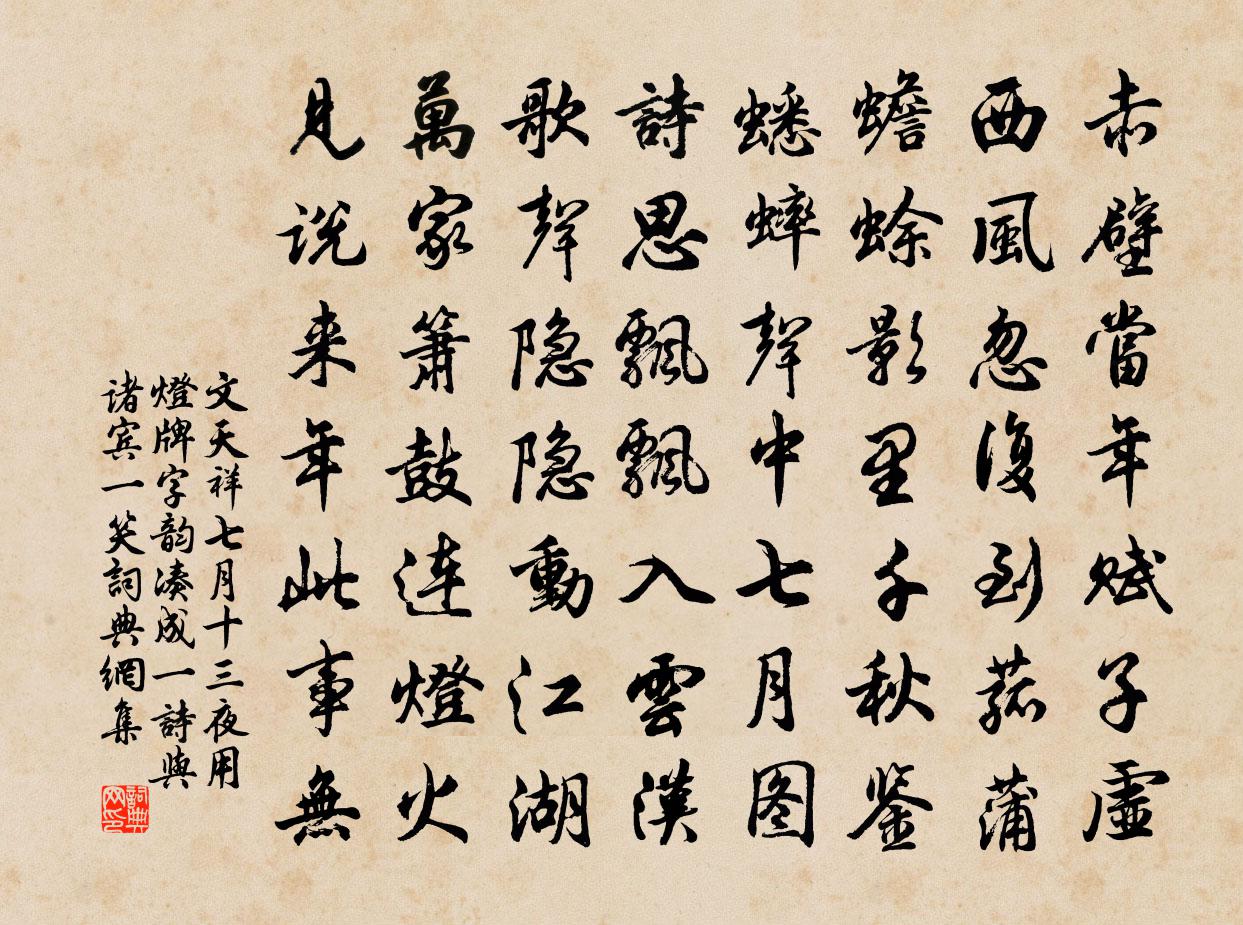 赤壁當年賦子虛
西風忽復到菰蒲
蟾蜍影里千秋鉴
蟋蟀聲中七月图
詩思飄飄入雲漢
歌聲隐隐動江湖
萬家簫鼓連燈火
見说来年此事無
文天祥七月十三夜用
燈牌字韵凑成一詩與
诸宾一笑詞典網集
詞典网印